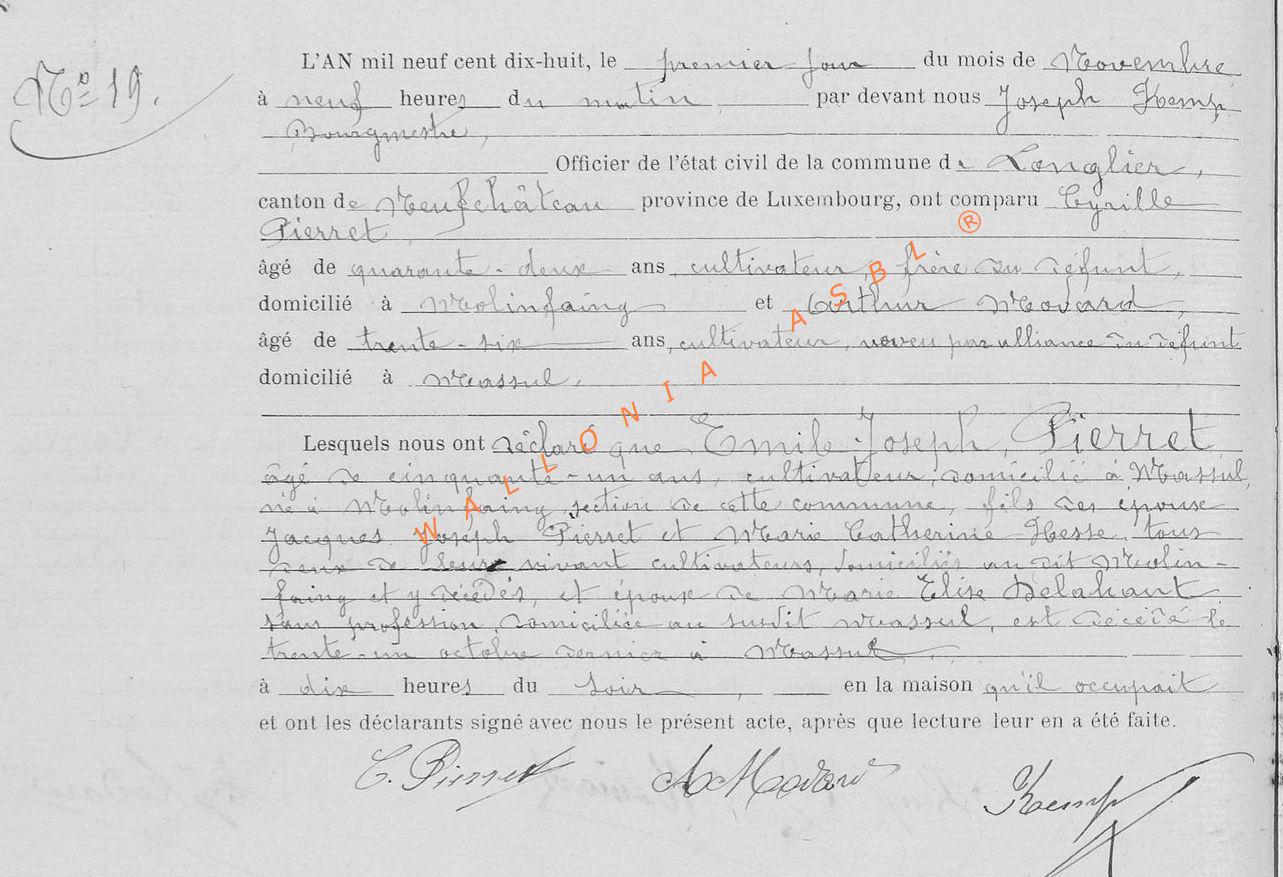 N° 19.
L'AN mil neuf cent dix-huit, le premier jour du mois de Novembre
à neuf heures du matin par devant nous Joseph Kemp
Bourgmestre,
Officier de l'état civil de la commune de Longlier,
canton de Neufchâteau province de Luxembourg, ont comparu Cyrille
Pierret,
âgé de quarante-deux ans, cultivateur, frère du défunt,
domicilié à Molinfaing et Arthur Modard,
âgé de trente-six ans, cultivateur, neveu par alliance du défunt
domicilié à Massul.
Lesquels nous ont déclaré que Emile Joseph Pierret
âgé de cinquante-un ans, cultivateur, domicilié à Massul,
né à Molinfaing, section de cette commune, fils des époux
Jacques Joseph Pierret et Marie Catherine Hesse, tous
deux de leur vivant cultivateurs, domiciliés au dit Molin-
faing et y décédés, et époux de Marie Elise Delahaut
sans profession, domiciliée au susdit Massul, est décédé le
trente-un octobre dernier à Massul,
à dix heures du soir, en la maison qu'il occupait
et ont les déclarants signé avec nous le présent acte, après que lecture leur en a été faite.
C. Pierret A Modard Kemp
WALLONIA ASBL ®